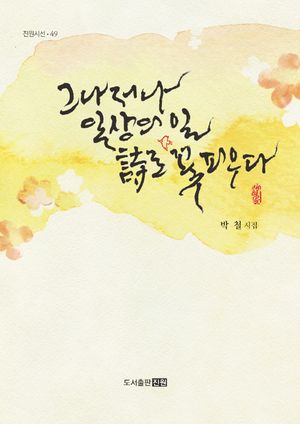 진원시선·49
그나저나
일상의 일
詩로 꽃 피우다
박 철 시집
도서출판 진원